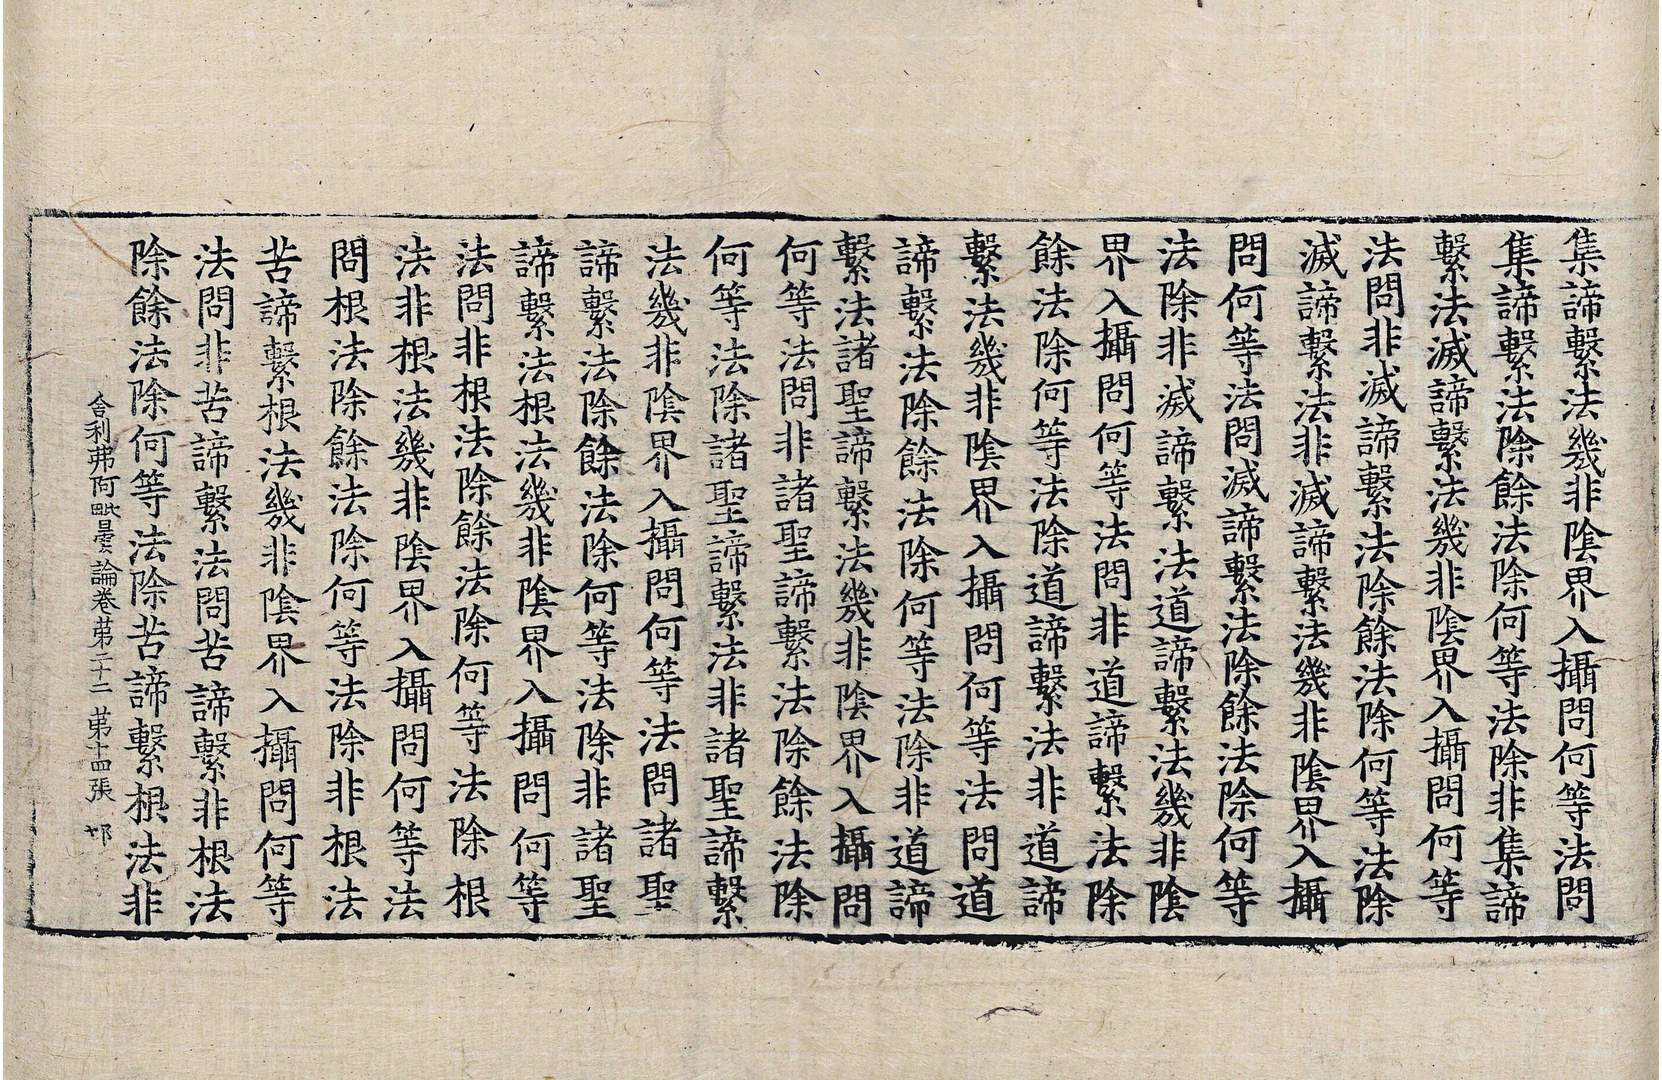 集諦繫法幾非陰界入攝問何等法問
集諦繫法除餘法除何等法除非集諦
繫法滅諦繫法幾非陰界入攝問何等
法問非滅諦繫法除餘法除何等法除
滅諦繫法非滅諦繫法幾非陰界入攝
問何等法問滅諦繫法除餘法除何等
法除非滅諦繫法道諦繫法幾非陰
界入攝問何等法問非道諦繫法除
餘法除何等法除道諦繫法非道諦
繫法幾非陰界入攝問何等法問道
諦繫法除餘法除何等法除非道諦
繫法諸聖諦繫法幾非陰界入攝問
何等法問非諸聖諦繫法除餘法除
何等法除諸聖諦繫法非諸聖諦繫
法幾非陰界入攝問何等法問諸聖
諦繫法除餘法除何等法除非諸聖
諦繫法根法幾非陰界入攝問何等
法問非根法除餘法除何等法除根
法非根法幾非陰界入攝問何等法
問根法除餘法除何等法除非根法
苦諦繫根法幾非陰界入攝問何等
法問非苦諦繫法問苦諦繫非根法
除餘法除何等法除苦諦繫根法非
舍利弗阿毗曇論卷苐二十二 苐十四張